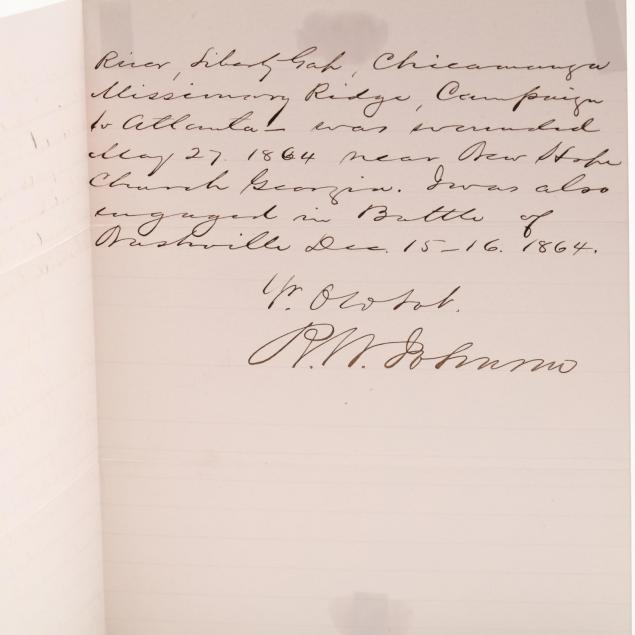 River, Liberty Gap, Chicamauga
Missionary Ridge, Campaign
to Atlanta — was wounded
May 27. 1864 near New Hope
Church Georgia. I was also
engaged in Battle of
Nashville Dec. 15-16. 1864.
Yr. Obt Sevt.
R. W. Johnson